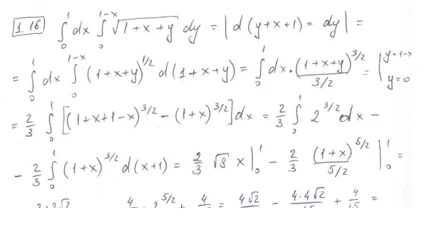 1.16 ∫₀¹ dx ∫₀^{1-x} √(1+x+y) dy = | d(y+x+1) = dy | =
= ∫₀¹ dx ∫₀^{1-x} (1+x+y)^{1/2} d(1+x+y) = ∫₀¹ dx · (1+x+y)^{3/2} / 3/2 = |^{y=1-x}_{y=0}
= 2/3 ∫₀¹ [(1+x+1-x)^{3/2} - (1+x)^{3/2}] dx = 2/3 ∫₀¹ 2^{3/2} dx -
- 2/3 ∫₀¹ (1+x)^{3/2} d(x+1) = 2/3 √8 x |₀¹ - 2/3 (1+x)^{5/2} / 5/2 |₀¹ =